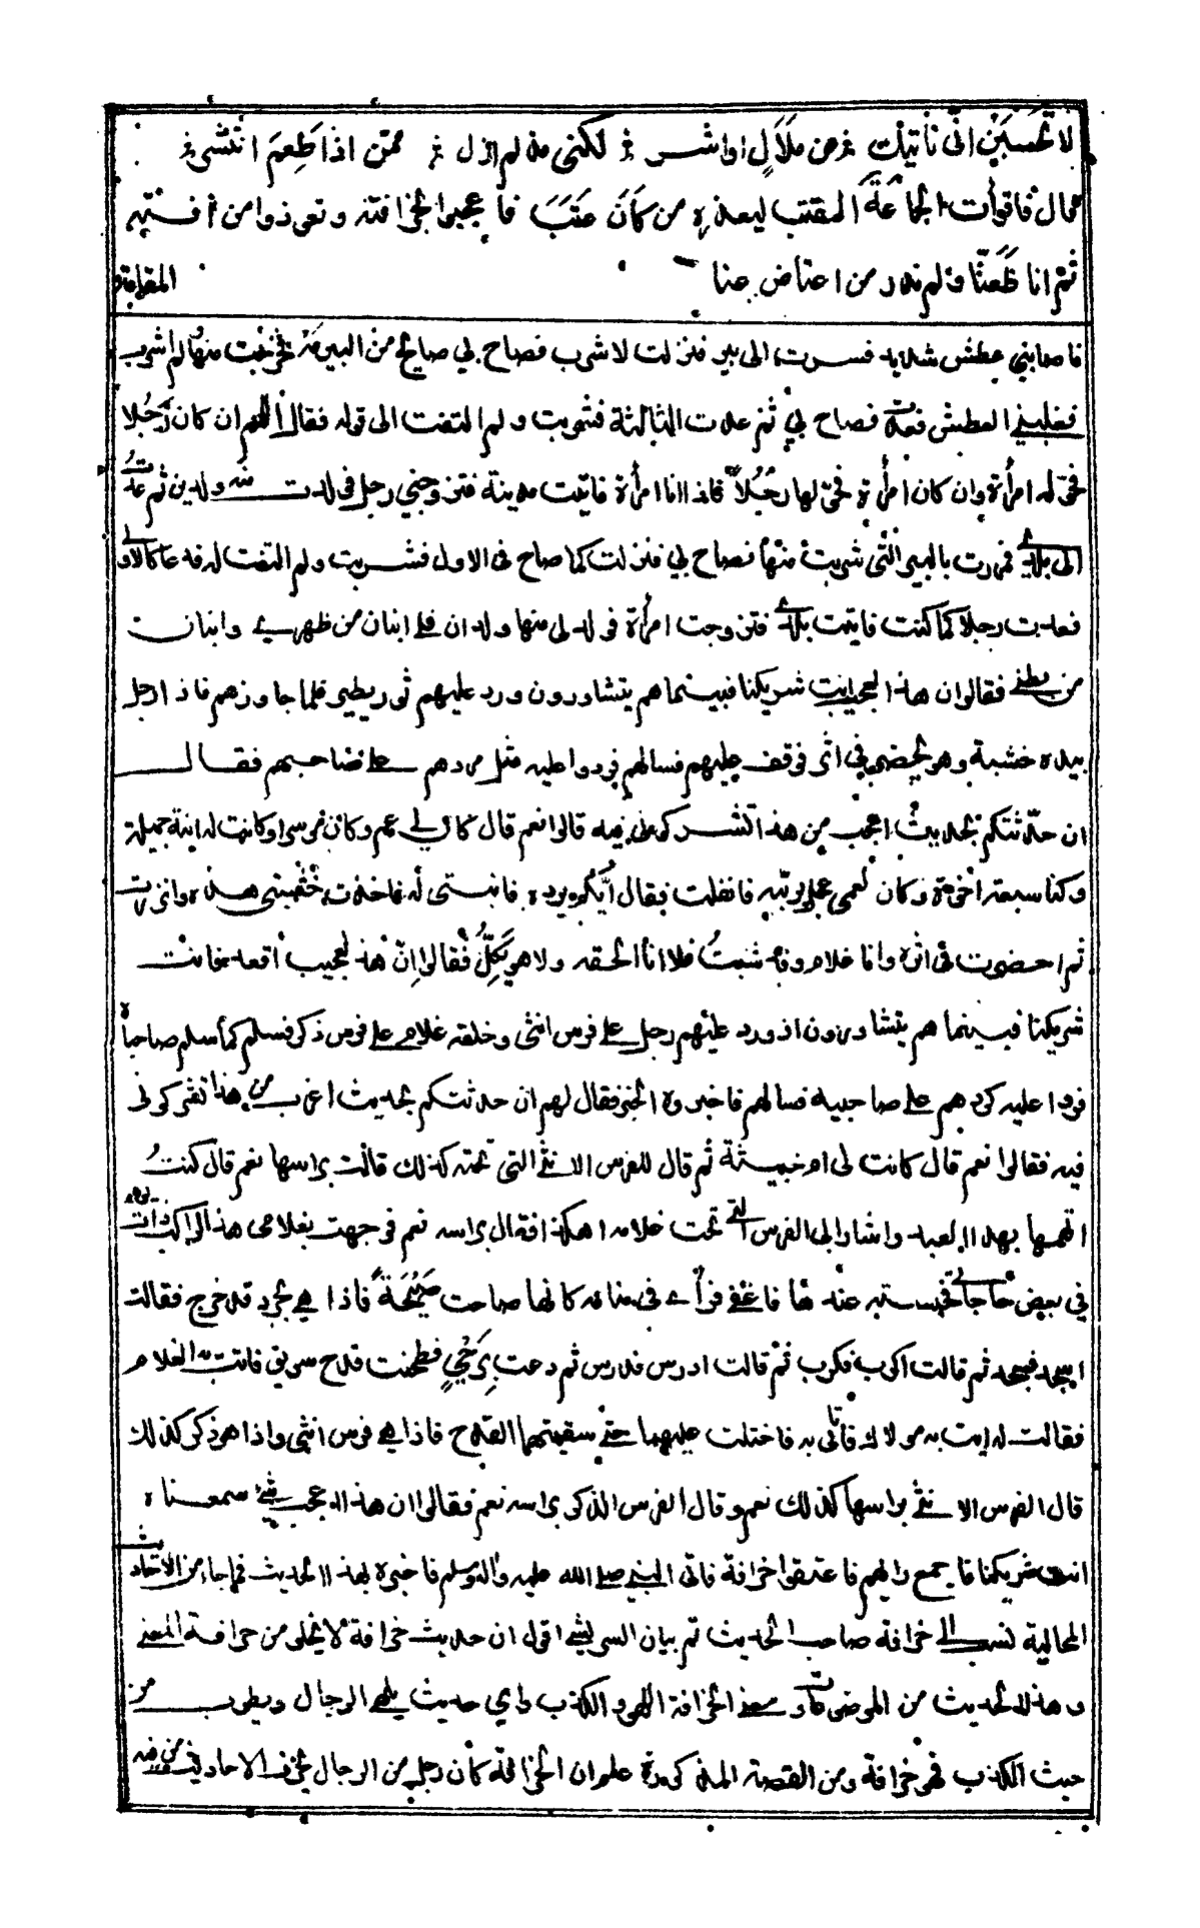 لا تحسبين انى نأتيك عن ملال او اشر لكنى مذ لم ازل ممن اذا طعم انتشى
قال فاقرأت الجماعة المقتب ليعذره من كان عتب فاعجبوا الخرافته وتعوذوا من أفته
ثم انا ظعنّا ولم ندر من اعتاض عنا المقامة
فاصابني عطش شديد فسرت الى بير فنزلت لاشرب فصاح بي صايح من البير مه فخرجت منها لم اشرب
فغلبني العطش فعدت فصاح بي ثم عدت الثالثة فشربت ولم التفت الى قوله فقال اللهم ان كان رَجُلا
فحوّله امرأة وان كان امرأة فحوّلها رجُلاً فاذا انا امرأة فاتيت مدينة فتزوجني رجل فولدت منه ولدين ثم عدتُ
الى بلدي فمررت بالبير التى شربت منها فصاح بي فنزلت كما صاح فى الاول فشربت ولم التفت له فدعا كالاول
فعدت رجلا كما كنت فاتيت بلدي فتزوجت امرأة فولد لى منها ولدان فلي ابنان من ظهري وابنان
من بطني فقالوا ان هذا لعجيب انت شريكنا فبينما هم يتشاورون ورد عليهم ثور يطير فلما جاوزهم فاذا رجل
بيده خشبة وهو يحضر في اثره فوقف عليهم فسالهم فردوا عليه مثل ردهم على صاحبهم فقال
ان حدّثتكم بحديث اعجب من هذا اتشركوني فيه قالوا نعم قال كان لي عم وكان موسرا وكانت له ابنة جميلة
وكنا سبعة اخوة وكان لعمى عجل يربّيه فانفلت فقال ايّكم يرده فابنتى له فاخذت خشبتى هذه واتزرت
ثم احضرت فى اثره وانا غلام وقد شبتُ فلا انا الحقه ولا هو يَكِلُّ فقالوا انّ هذا لعجيب أقعد فانت
شريكنا فبينما هم يتشاورون اذ ورد عليهم رجل على فرس انثى وخلفه غلام على فرس ذكر فسلم كما سلم صاحباه
فردا عليه كردهم على صاحبيه فسالهم فاخبروه الخبر فقال لهم ان حدثتكم بحديث اغرب من هذا تشركونى
فيه فقالوا نعم قال كانت لى ام خبيثة ثم قال للفرس الانثى التى تحته كذلك قالت براسها نعم قال كنتُ
اتهمها بهذا العبد واشار الى الفرس التي تحت غلامه اهكذا فقال براسه نعم فوجهت بغلامى هذا الراكب ذات يوم
في بعض حاجاتى فحبسته عندها فاغفى فرأى فى منامه كانها صاحت صَيْحَةً فاذا هي بجرد قد خرج فقالت
اسجد فسجد ثم قالت اكرب فكرب ثم قالت ادرس فدرس ثم دعت برَحًى فطحنت قدح سويق فاتت به الغلام
فقالت له ايت به مولاك فأتانى به فاحتلت عليهما حتى سقيتهما القدح فاذا هي فرس انثى واذا هو ذكر كذلك
قال الفرس الانثى براسها كذلك نعم وقال الفرس الذكر براسه نعم فقالوا ان هذا اعجب شيء سمعناه
انت شريكنا فاجمع رايهم فاعتقوا خرافة فاتى النبي صلى الله عليه وآله وسلم فاخبره بهذا الحديث فما جاء من الاحاديث
المحالية نسب الى خرافة صاحب الحديث تم بيان السريشي اقول ان حديث خرافة لا يخلو من خرافة المعنى
وهذا الحديث من الموضوعات ومعنى الخرافة اللهو والكذب واي حديث يلهى الرجال ويطرب من
حيث الكذب فهو خرافة ومن القصة المذكورة علم ان الخرافة كان رجل من الرجال